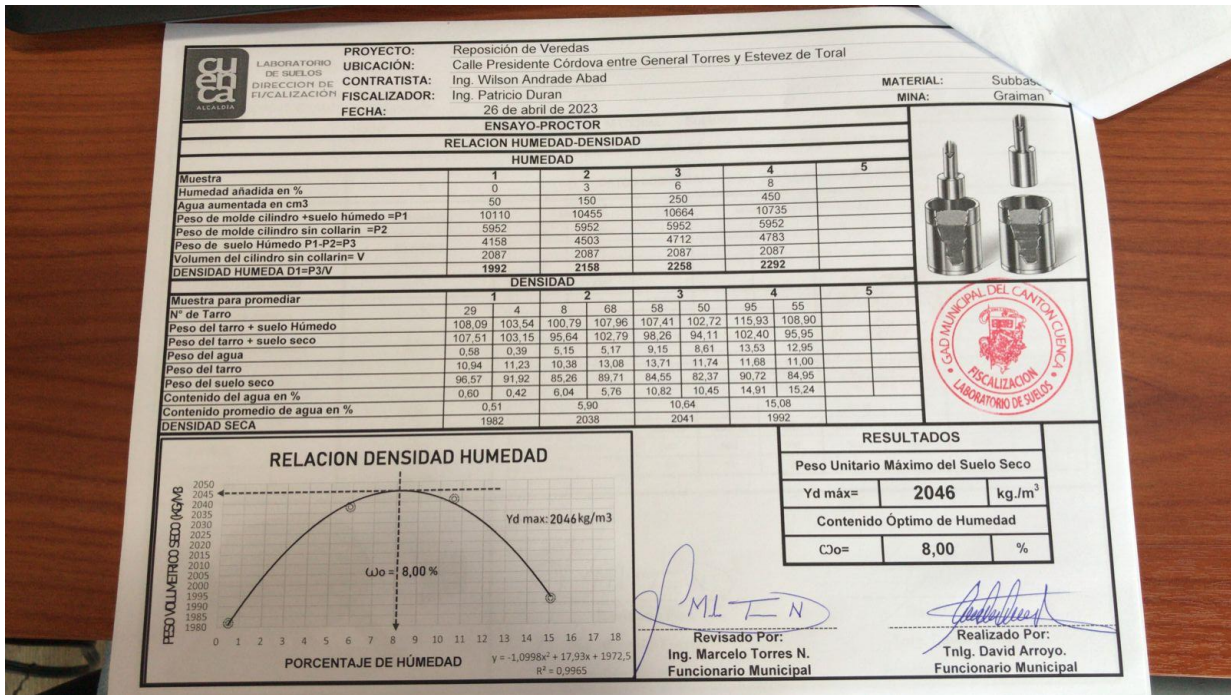 cuenca
ALCALDÍA
LABORATORIO
DE SUELOS
DIRECCION DE
FI/CALIZACIÓN
PROYECTO: Reposición de Veredas
UBICACIÓN: Calle Presidente Córdova entre General Torres y Estevez de Toral
CONTRATISTA: Ing. Wilson Andrade Abad
FISCALIZADOR: Ing. Patricio Duran
FECHA: 26 de abril de 2023
MATERIAL:
MINA: Graiman
ENSAYO-PROCTOR
RELACION HUMEDAD-DENSIDAD
HUMEDAD
Muestra 1 2 3 4 5
Humedad añadida en % 0 3 6 8
Agua aumentada en cm3 50 150 250 450
Peso de molde cilindro +suelo húmedo =P1 10110 10455 10664 10735
Peso de molde cilindro sin collarin =P2 5952 5952 5952 5952
Peso de suelo Húmedo P1-P2=P3 4158 4503 4712 4783
Volumen del cilindro sin collarin= V 2087 2087 2087 2087
DENSIDAD HUMEDA D1=P3/V 1992 2158 2258 2292
DENSIDAD
Muestra para promediar 1 2 3 4 5
N° de Tarro 29 4 8 68 58 50 95 55
Peso del tarro + suelo Húmedo 108,09 103,54 100,79 107,96 107,41 102,72 115,93 108,90
Peso del tarro + suelo seco 107,51 103,15 95,64 102,79 98,26 94,11 102,40 95,95
Peso del agua 0,58 0,39 5,15 5,17 9,15 8,61 13,53 12,95
Peso del tarro 10,94 11,23 10,38 13,08 13,71 11,74 11,68 11,00
Peso del suelo seco 96,57 91,92 85,26 89,71 84,55 82,37 90,72 84,95
Contenido del agua en % 0,60 0,42 6,04 5,76 10,82 10,45 14,91 15,24
Contenido promedio de agua en % 0,51 5,90 10,64 15,08
DENSIDAD SECA 1982 2038 2041 1992
GAD MUNICIPAL DEL CANTON CUENCA
FISCALIZACION
LABORATORIO DE SUELOS
RELACION DENSIDAD HUMEDAD
PESO VOLUMETRICO SECO (KG/M3
2050
2045
2040
2035
2030
2025
2020
2015
2010
2005
2000
1995
1990
1985
1980
Yd max: 2046 kg/m3
ωo = 8,00 %
0 1 2 3 4 5 6 7 8 9 10 11 12 13 14 15 16 17 18
PORCENTAJE DE HÚMEDAD
y = -1,0998x² + 17,93x + 1972,5
R² = 0,9965
RESULTADOS
Peso Unitario Máximo del Suelo Seco
Yd máx= 2046 kg./m³
Contenido Óptimo de Humedad
ωo= 8,00 %
Revisado Por:
Ing. Marcelo Torres N.
Funcionario Municipal
Realizado Por:
Tnlg. David Arroyo.
Funcionario Municipal